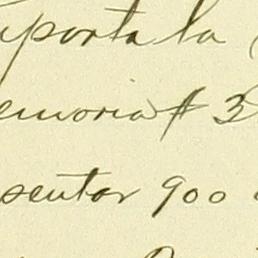 porta la
emoria # 3
sentar 900